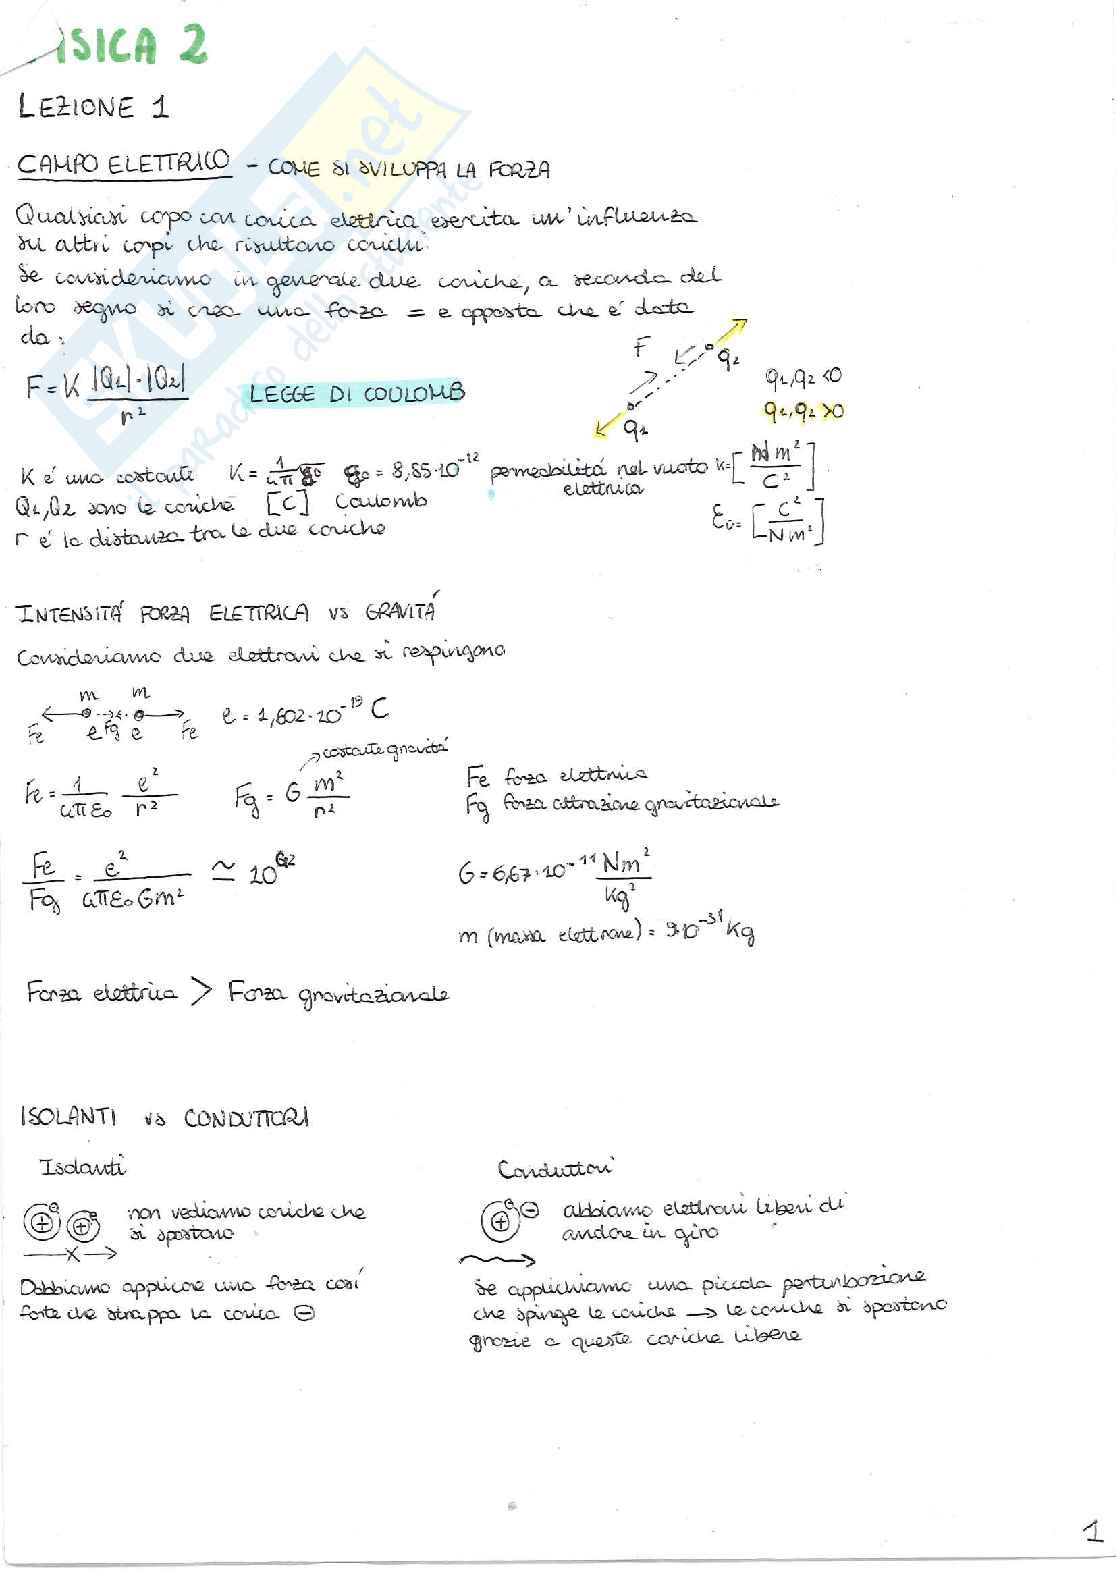 FISICA 2
LEZIONE 1
CAMPO ELETTRICO - COME SI SVILUPPA LA FORZA
Qualsiasi copo con carica elettrica esercita un'influenza
su altri corpi che risultano carichi.
Se consideriamo in generale due cariche, a seconda del
loro segno si crea una forza = e opposta che e' data
da:
F = K |Q1|·|Q2| / r²
LEGGE DI COULOMB
F q2 q1
q1,q2 <0
q1,q2 >0
K e' una costante K = 1/4π ε0 ε0 = 8,85·10⁻¹² permeabilità nel vuoto k=[N m²/C²]
elettrica
Q1,Q2 sono le cariche [C] Coulomb
ε0=[C²/N m²]
r e' la distanza tra le due cariche
INTENSITA' FORZA ELETTRICA vs GRAVITA'
Consideriamo due elettroni che si respingono
m m
Fe e Fg e Fe e = 1,602·10⁻¹⁹ C
costante gravità
Fe = 1/4πε0 e²/r² Fg = G m²/r²
Fe forza elettrica
Fg forza attrazione gravitazionale
Fe/Fg = e²/4πε0 G m² ≃ 10⁴²
G = 6,67·10⁻¹¹ Nm²/Kg²
m (massa elettrone) = 9·10⁻³¹ Kg
Forza elettrica > Forza gravitazionale
ISOLANTI vs CONDUTTORI
Isolanti
non vediamo cariche che
si spostano
Dobbiamo applicare una forza così
forte che strappa la carica ⊖
Conduttori
abbiamo elettroni liberi di
andare in giro
Se applichiamo una piccola perturbazione
che spinge le cariche → le cariche si spostano
grazie a queste cariche libere
1
SKUOLA.net
il paradiso dello studente